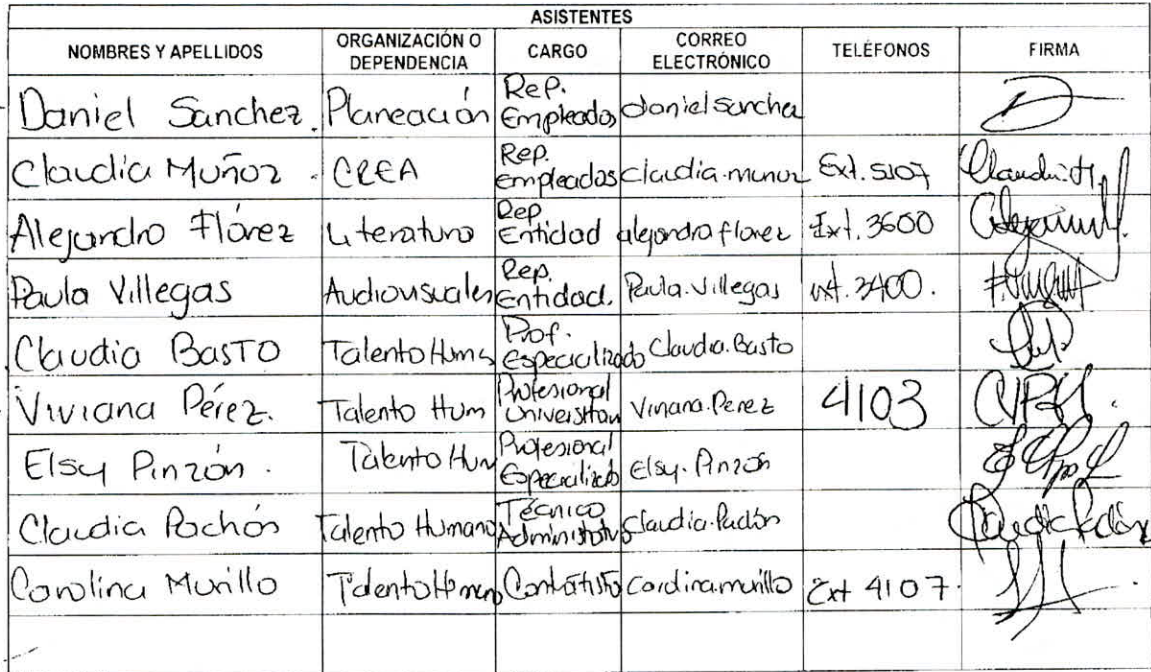 ASISTENTES
NOMBRES Y APELLIDOS ORGANIZACIÓN O DEPENDENCIA CARGO CORREO ELECTRÓNICO TELÉFONOS FIRMA
Daniel Sanchez. Planeación Rep. Empleados danielsanchez
Claudia Muñoz CREA Rep. empleados claudia.munoz Ext. 5107 Claudia M
Alejandro Flórez Literatura Rep. Entidad alejandro florez Ext. 3600
Paula Villegas Audiovisuales Rep. Entidad. Paula.Villegas ext. 3400.
Claudia BasTO Talento Hum Prof. especializado Claudia.Basto
Viviana Pérez. Talento Hum Profesional Universitario Viviana.Perez 4103
Elsy Pinzón. Talento Hum Profesional Especializado Elsy.Pinzón
Claudia Pachón Talento Humano Técnico Administrativo Claudia.Pachón Claudia Pachón
Carolina Murillo Talento Humano Contratista carolina.murillo Ext 4107.